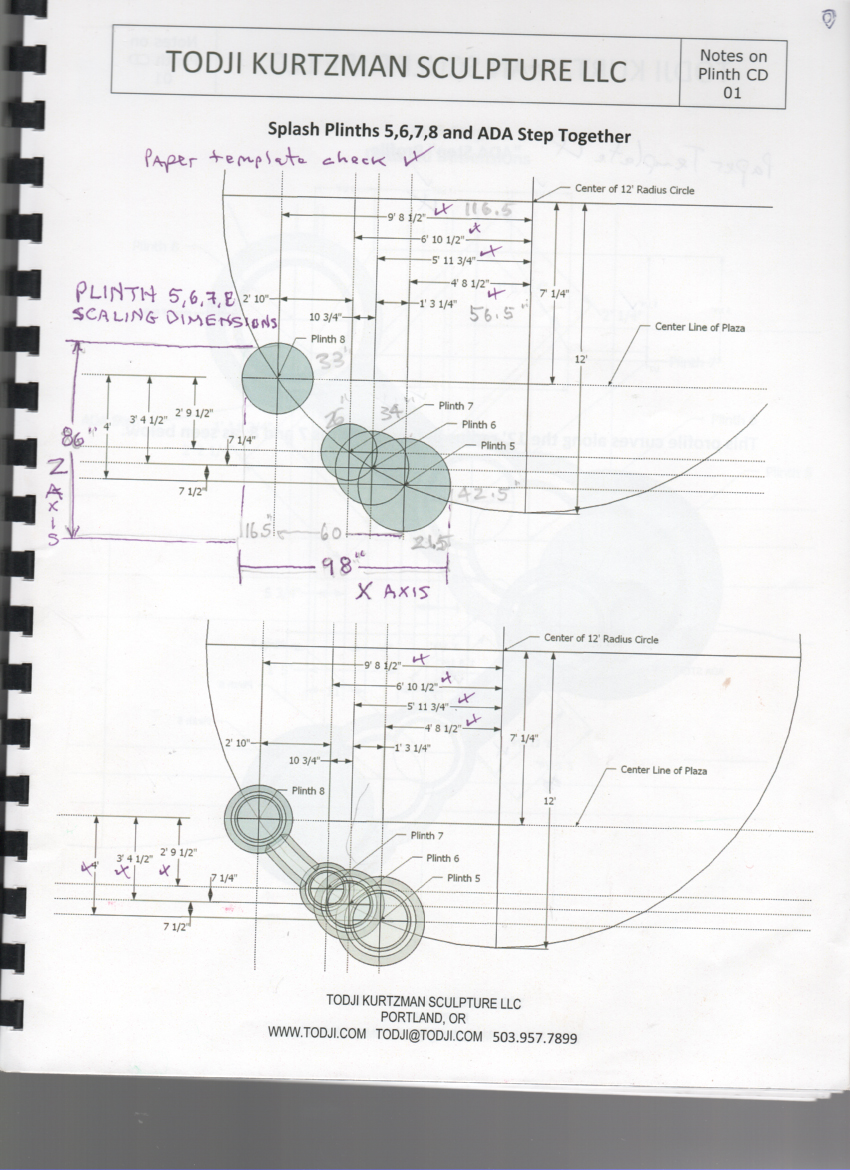 TODJI KURTZMAN SCULPTURE LLC
Notes on
Plinth CD
01
Splash Plinths 5,6,7,8 and ADA Step Together
Paper template check
Center of 12' Radius Circle
9' 8 1/2" 116.5
6' 10 1/2"
5' 11 3/4"
4' 8 1/2"
56.5"
PLINTH 5,6,7,8
SCALING DIMENSIONS
2' 10"
1' 3 1/4"
10 3/4"
7' 1/4"
Center Line of Plaza
12'
Plinth 8
33"
26"
34"
Plinth 7
Plinth 6
Plinth 5
4'
3' 4 1/2"
2' 9 1/2"
7 1/4"
7 1/2"
86"
Z AXIS
42.5"
16.5"
60
21.5
98"
X AXIS
Center of 12' Radius Circle
9' 8 1/2"
6' 10 1/2"
5' 11 3/4"
4' 8 1/2"
2' 10"
1' 3 1/4"
10 3/4"
7' 1/4"
Center Line of Plaza
12'
Plinth 8
Plinth 7
Plinth 6
Plinth 5
4'
3' 4 1/2"
2' 9 1/2"
7 1/4"
7 1/2"
TODJI KURTZMAN SCULPTURE LLC
PORTLAND, OR
WWW.TODJI.COM TODJI@TODJI.COM 503.957.7899